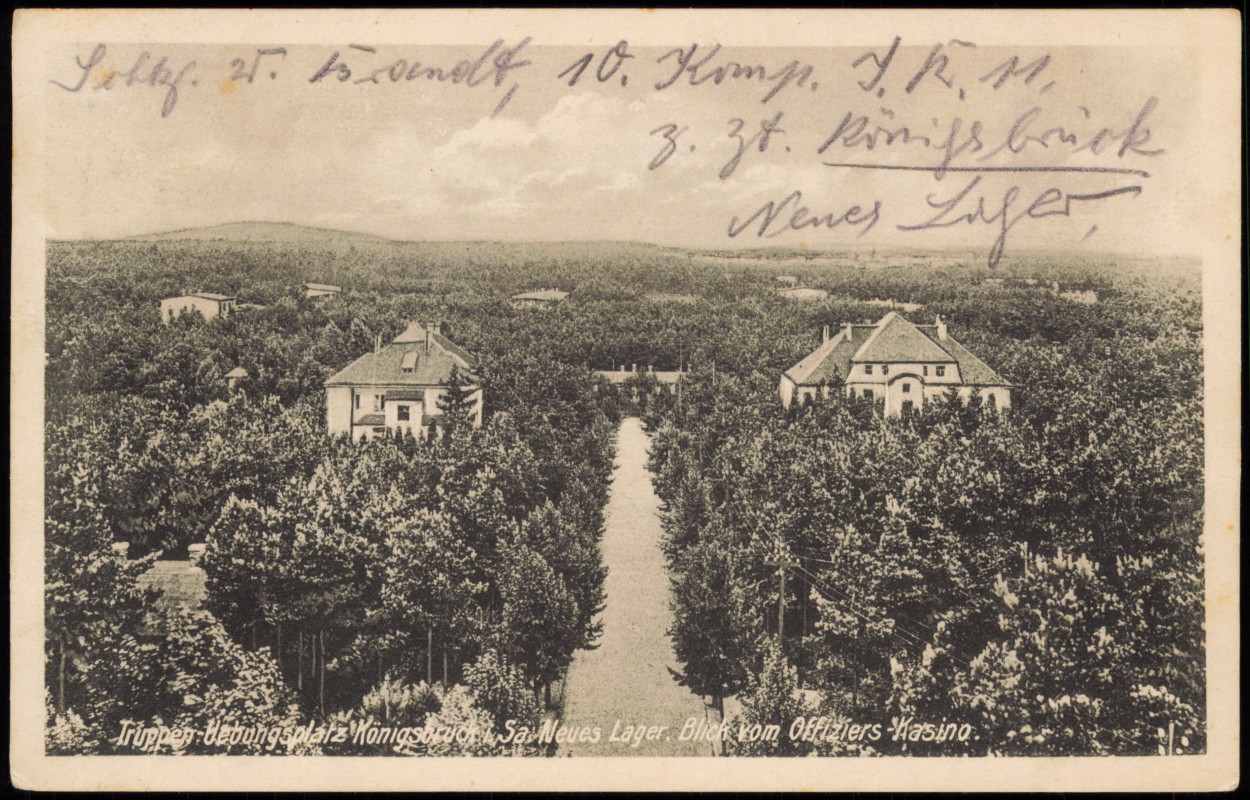 Schtz. v. Brandt, 10. Komp. J. R. 11,
z. Zt. Königsbrück
Neues Lager,
Truppen-Uebungsplatz Königsbrück i. Sa. Neues Lager. Blick vom Offiziers-Kasino.